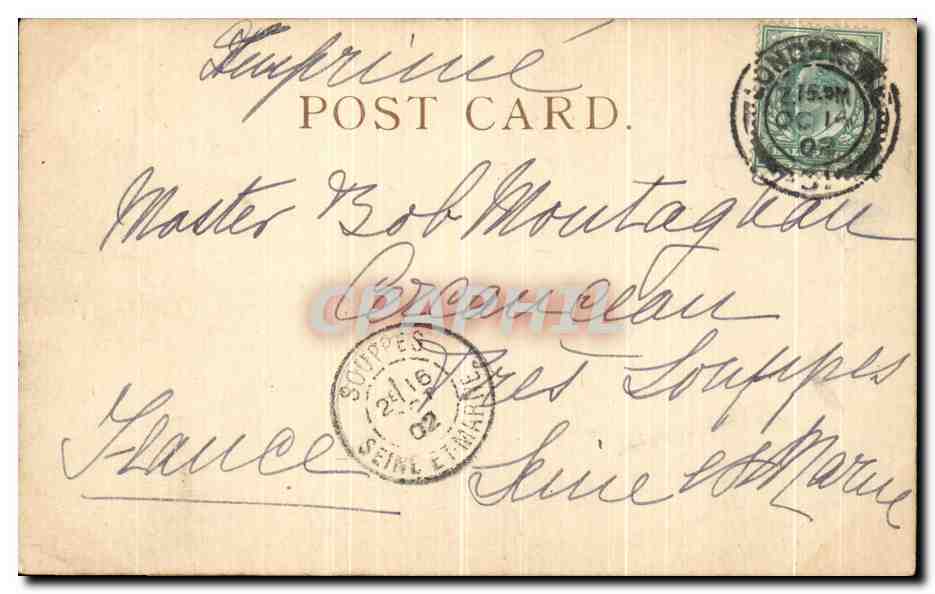 Imprimé
POST CARD.
LONDON. W.
7.15.PM
OC 14
02
31
Master Bob Montaghan
Cercanceau
CPAPHIL
Près Souppes
France
Seine et Marne
SOUPPES
2E 16
02
SEINE ET-MARNE